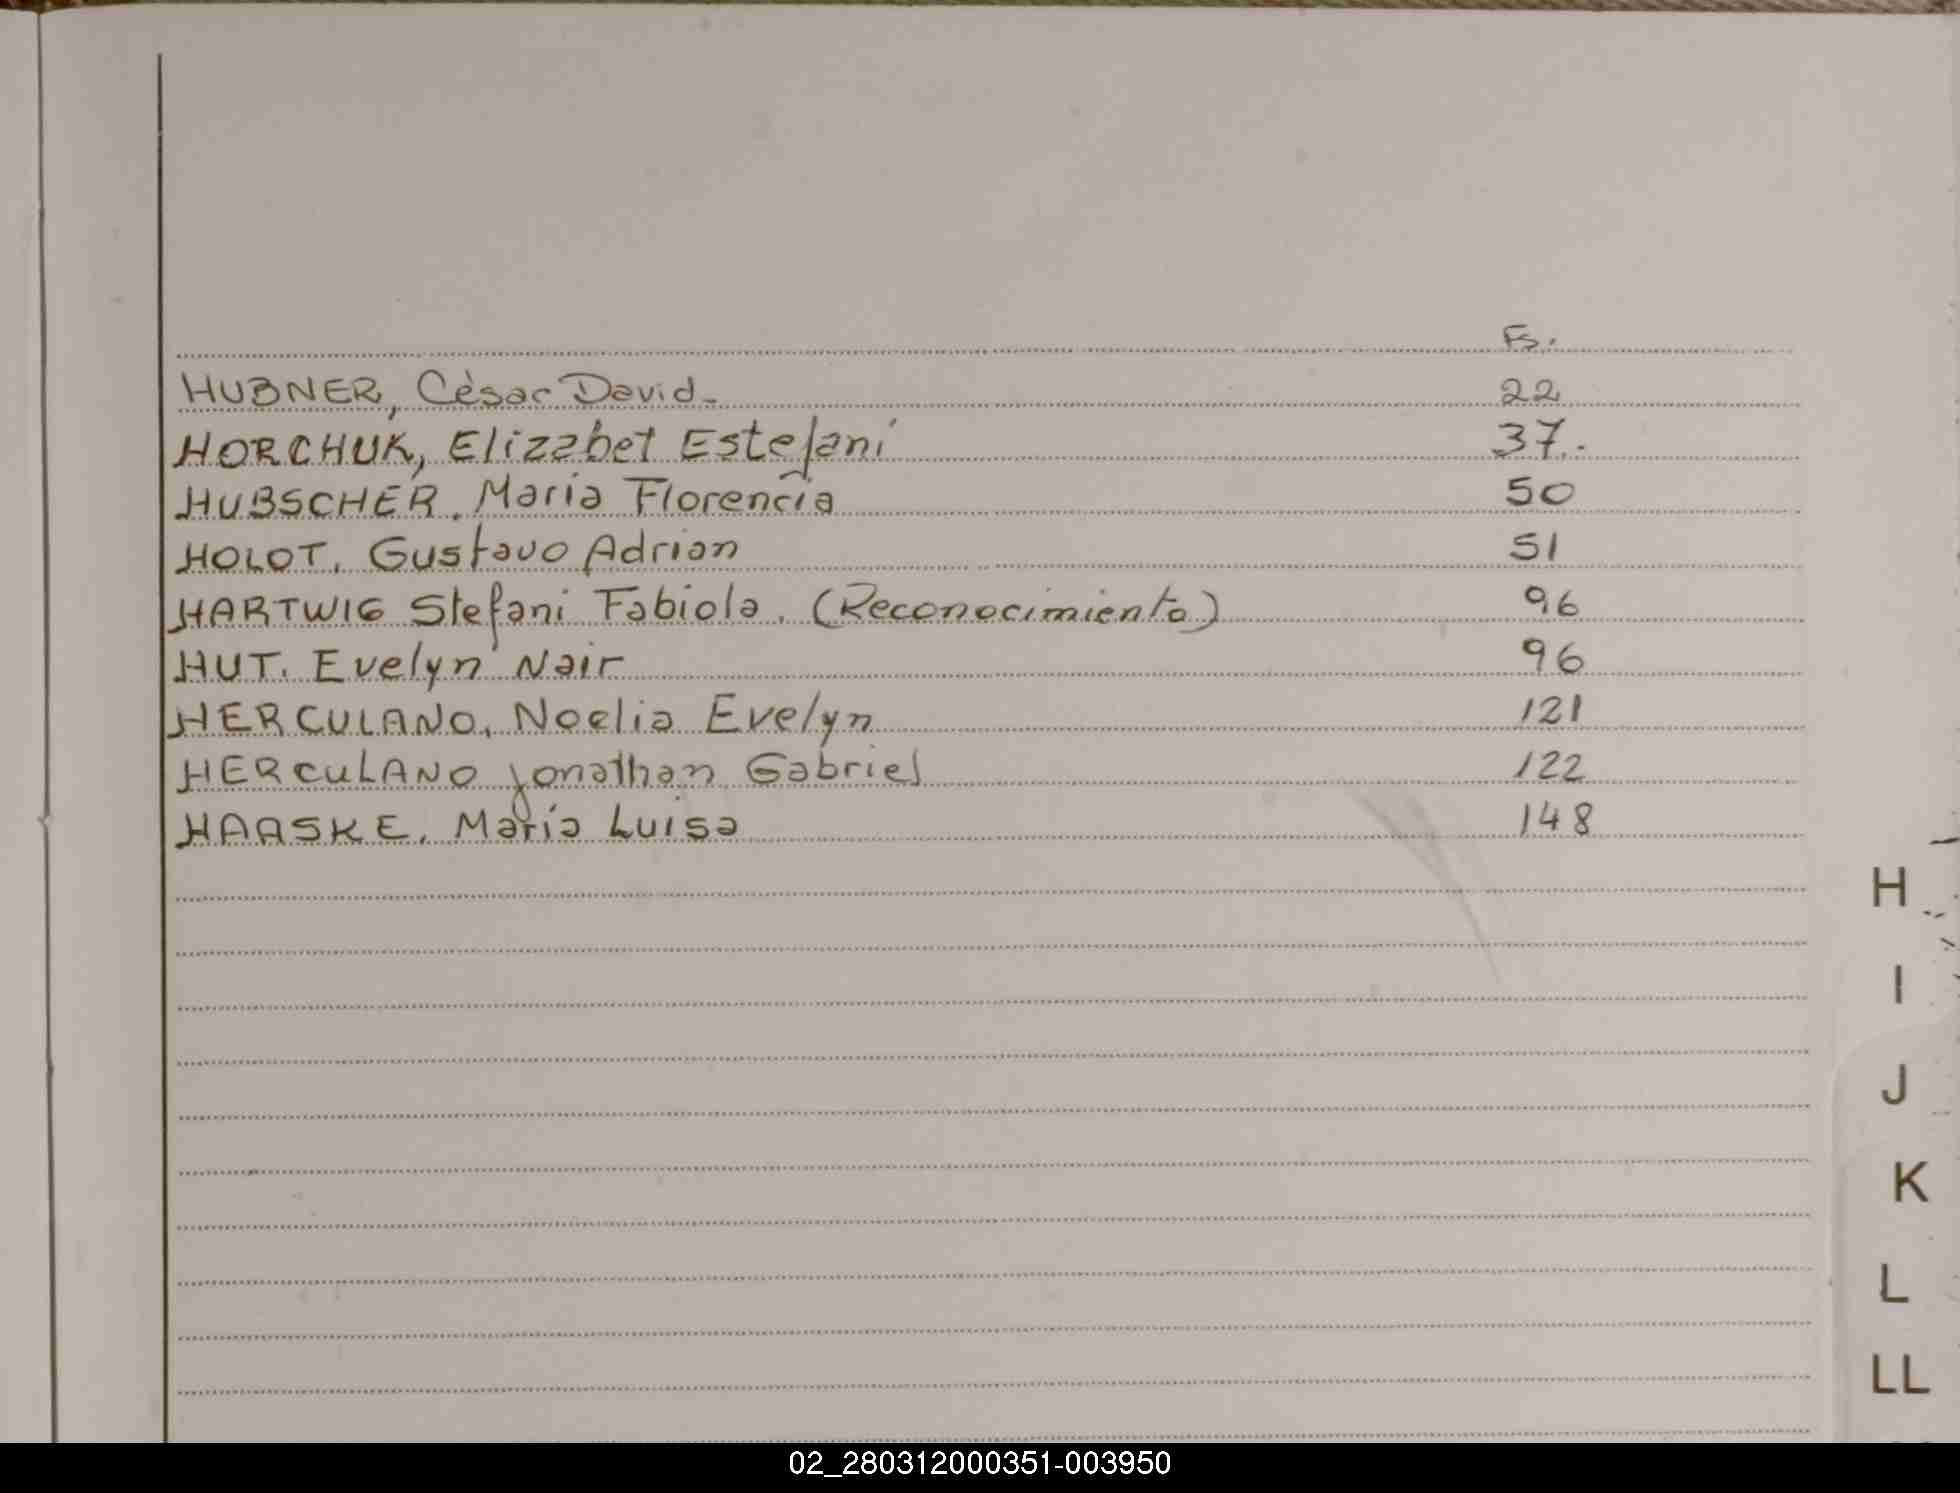 Fs.
HUBNER, Cèsar David- 22
HORCHUK, Elizabet Estefaní 37.-
HUBSCHER. María Florencia 50
HOLOT. Gustavo Adrian 51
HARTWIG Stefani Fabiola. (Reconocimiento) 96
HUT. Evelyn Nair 96
HERCULANO. Noelia Evelyn 121
HERCULANO Jonathan Gabriel 122
HAASKE. María Luisa 148
H
I
J
K
L
LL
02_280312000351-003950